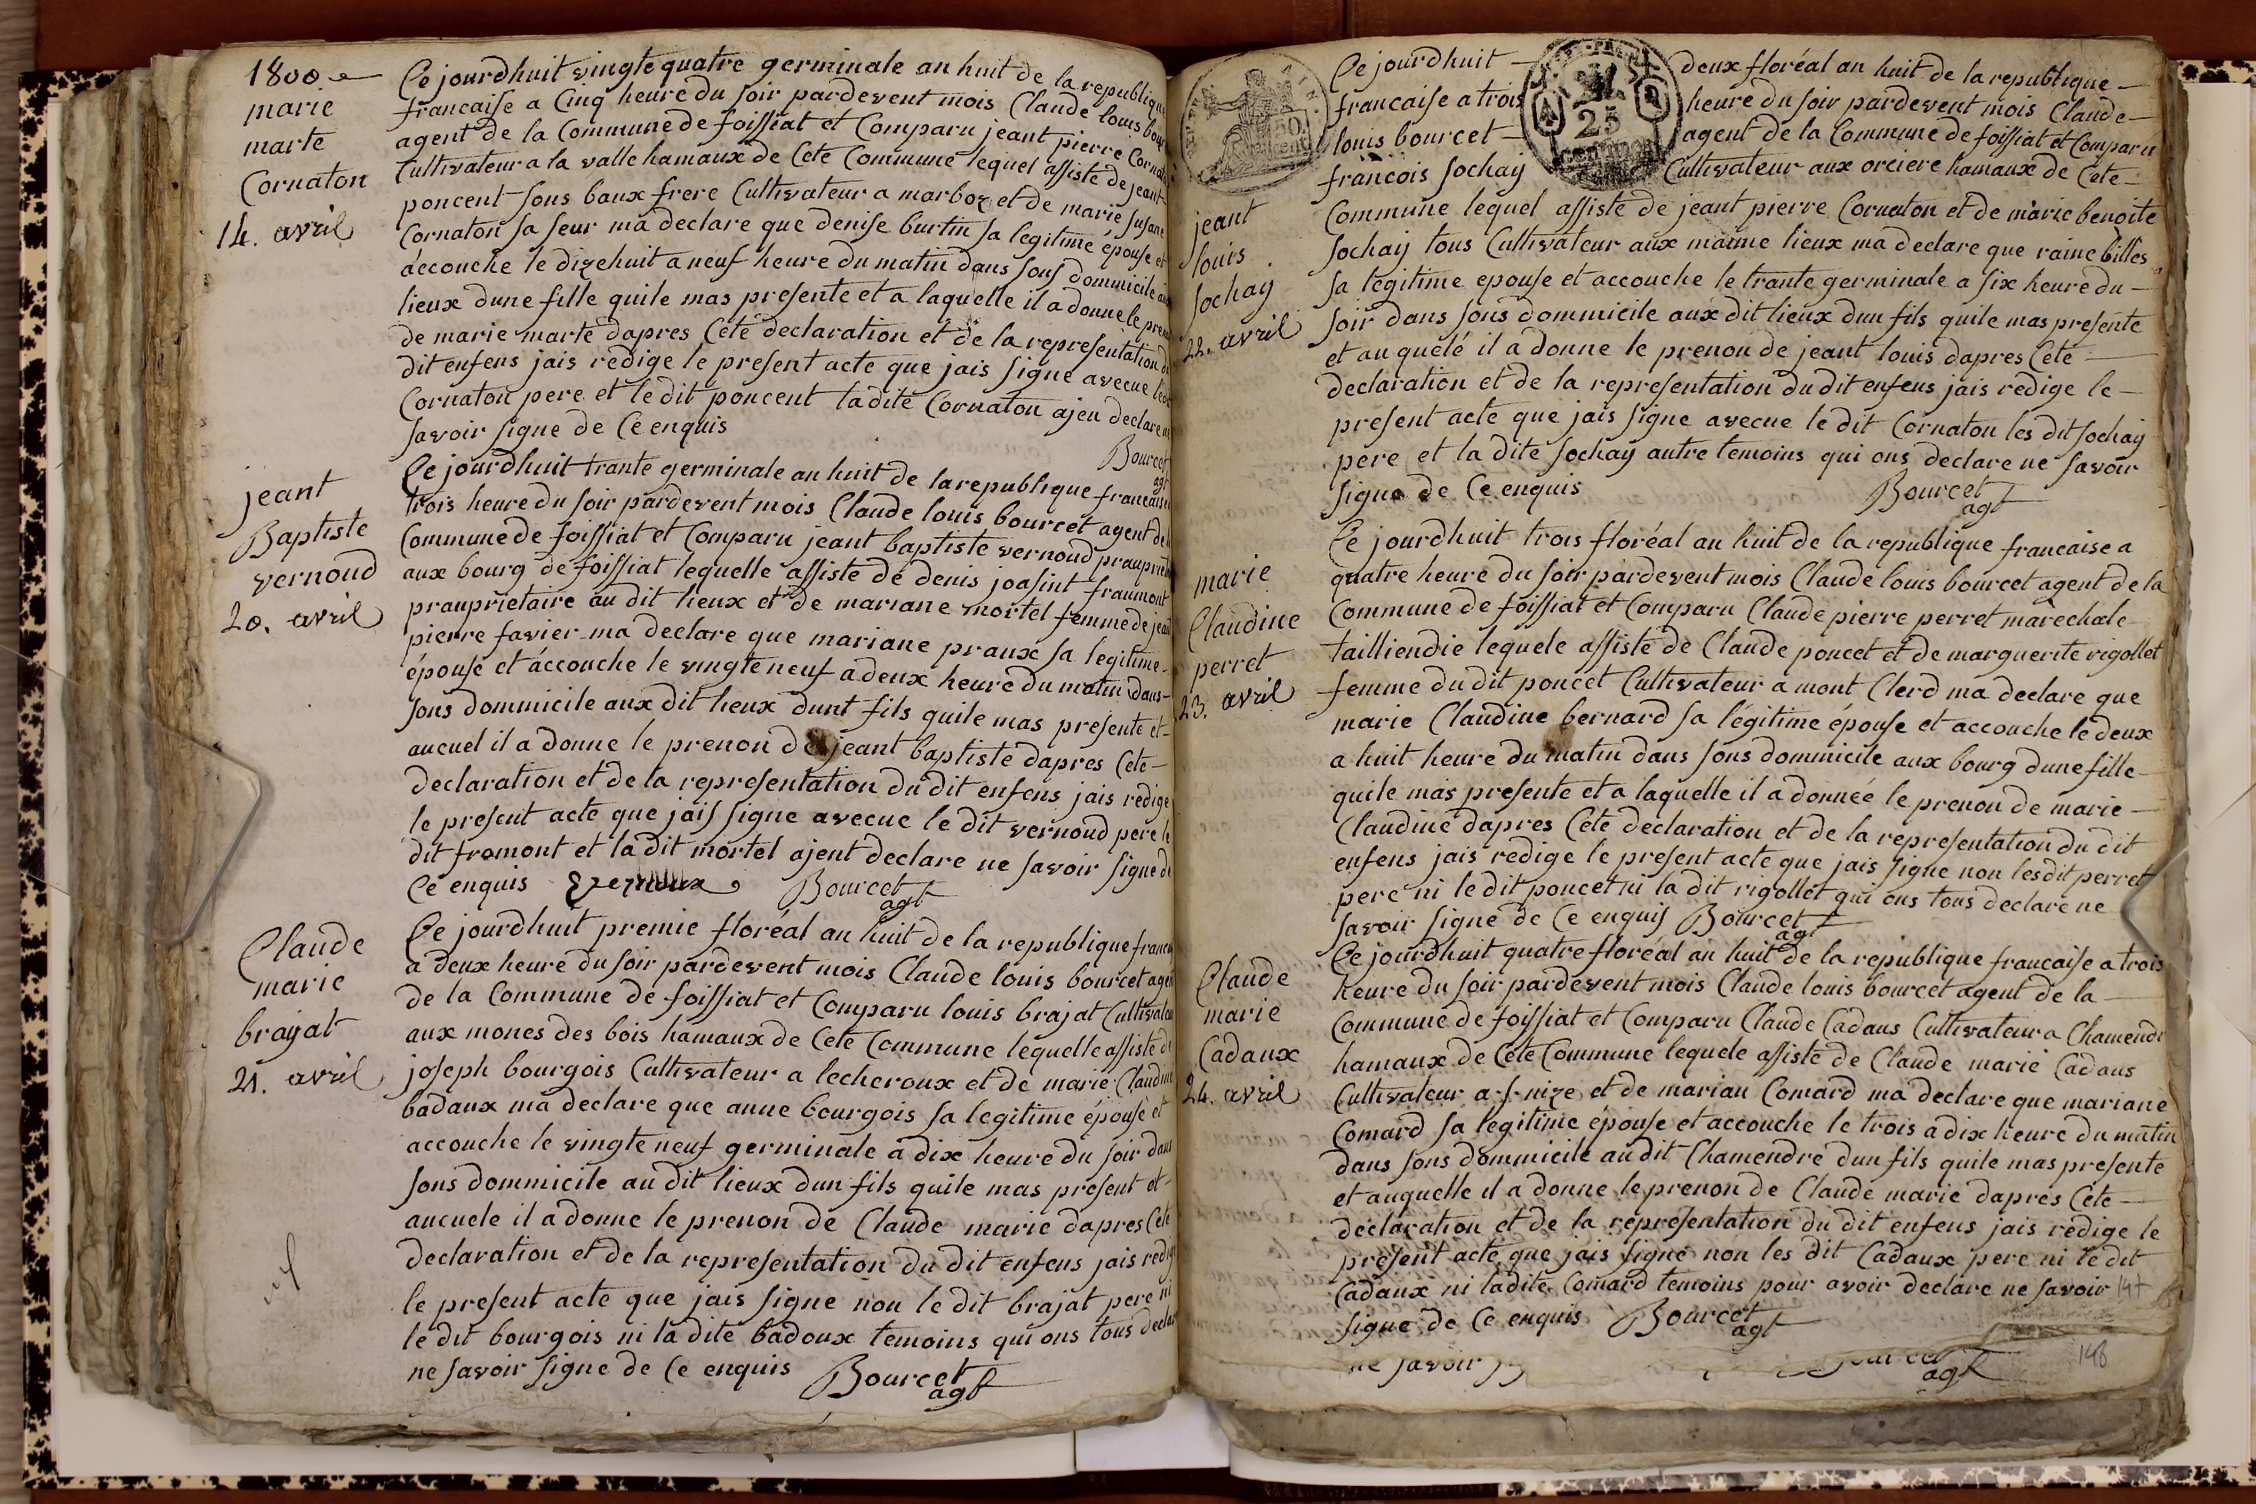 1800
marie
marte
Cornaton
14. avril
Ce jourdhuit vingte quatre germinale an huit de la republique
francaise a Cinq heure du soir pardevent mois Claude louis bour
agent de la Commune de foissiat et Comparu jeant pierre Cornat
Cultivateur a la valle hamaux de Cete Commune lequel assiste de jeant
poncent sons baux frere Cultivateur a marboz et de marie susane
Cornaton sa seur ma declare que denise burtin sa legitime épouse et
accouche le dizehuit a neuf heure du matin dans sons dommicile
lieux dune fille quile mas presente et a laquelle il a donne le pren
de marie marte dapres Cete declaration et de la representation du
dit enfens jais redige le present acte que jais signe avecue
Cornaton pere et le dit poncent ladite Cornaton ajen declare ne
savoir signe de Ce enquis
Bourcet
agt
jeant
Baptiste
vernoud
20. avril
Ce jourdhuit trante germinale an huit de la republique francaise
trois heure du soir pardevent mois Claude louis bourcet agent de
Commune de foissiat et Comparu jeant baptiste vernoud prauprie
aux bourg de foissiat lequelle assiste de denis joasint fraumont
prauprietaire au dit lieux et de mariane mortel femme de jeant
pierre favier ma declare que mariane praux sa legitime
épouse et áccouche le vingte neuf a deux heure du matin dans
sons dommicile aux dit lieux dunt fils quile mas presente et
aucuel il a donne le prenon de jeant baptiste dapres Cete
declaration et de la representation du dit enfens jais redige
le present acte que jais signe avecue le dit vernoud pere le
dit fromont et la dit mortel ajent declare ne savoir signe de
Ce enquis Bourcet
agt
Claude
marie
brajat
21. avril
Ce jourdhuit premie floréal an huit de la republique francai
a deux heure du soir pardevent mois Claude louis bourcet agen
de la Commune de foissiat et Comparu louis brajat Cultivateu
aux mones des bois hamaux de Cete Commune lequelle assiste de
joseph bourgois Cultivateur a lecheroux et de marie Claudine
badaux ma declare que anne bourgois sa legitime épouse et
accouche le vingte neuf germinale a dix heure du soir dans
sons dommicile au dit lieux dun fils quile mas present et
aucuele il a donne le prenon de Claude marie dapres Cete
declaration et de la representation du dit enfens jais redige
le present acte que jais signe non le dit brajat pere ni
le dit bourgois ni la dite badoux temoins qui ons tous declar
ne savoir signe de Ce enquis Bourcet
agt
jeant
louis
sochay
22. avril
Ce jourdhuit deux floréal an huit de la republique
francaise a trois heure du soir pardevent mois Claude
louis bourcet agent de la Commune de foissiat et Comparu
francois sochay Cultivateur aux orciere hamaux de Cete
25
Centimes
Commune lequel assiste de jeant pierre Cornaton et de marie benoite
sochay tous Cultivateur aux maime lieux ma declare que raine billes
sa legitime epouse et accouche le trante germinale a six heure du
soir dans sons dommicile aux dit lieux dun fils quile mas presente
et au quele il a donne le prenon de jeant louis dapres Cete
declaration et de la representation du dit enfens jais redige le
present acte que jais signe avecue le dit Cornaton les dit sochay
pere et la dite sochay autre temoins qui ons declare ne savoir
signe de Ce enquis Bourcet
agt
marie
Claudine
perret
23. avril
Ce jourdhuit trois floréal an huit de la republique francaise a
quatre heure du soir pardevent mois Claude louis bourcet agent de la
Commune de foissiat et Comparu Claude pierre perret marechale
tailliendie lequele assiste de Claude poncet et de marguerite rigollet
femme du dit poncet Cultivateur a mont Clerd ma declare que
marie Claudine bernard sa légitime épouse et accouche le deux
a huit heure du matin dans sons dommicile aux bourg dune fille
quile mas presente et a laquelle il a donneé le prenon de marie
Claudine dapres Cete declaration et de la representation du dit
enfens jais redige le present acte que jais signe non lesdit perret
pere ni le dit poncet ni la dit rigollet qui ons tous declare ne
savoir signe de Ce enquis Bourcet
agt
Claude
marie
Cadaux
24. avril
Ce jourdhuit quatre floréal an huit de la republique francaise a trois
heure du soir pardevent mois Claude louis bourcet agent de la
Commune de foissiat et Comparu Claude Cadaus Cultivateur a Chamendr
hamaux de Cete Commune lequele assiste de Claude marie Cadaus
Cultivateur a s nize et de marian Comard ma declare que mariane
Comard sa legitime épouse et accouche le trois a dix heure du matin
dans sons dommicile au dit Chamendre dun fils quile mas presente
et auquelle il a donne le prenon de Claude marie dapres Cete
declaration et de la representation du dit enfens jais redige le
present acte que jais signe non les dit Cadaux pere ni le dit
Cadaux ni ladite Comard temoins pour avoir declare ne savoir 147
signe de Ce enquis Bourcet
agt
ne savoir
agt
148